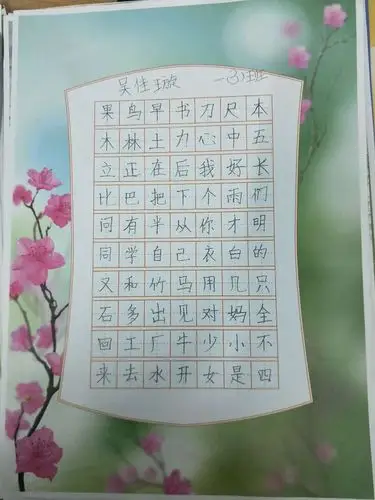 吴佳璇 一(3)班
果鸟早书刀尺本
木林土力心中五
立正在后我好长
比巴把下个雨们
问有半从你才明
同学自己衣白的
又和竹马用几只
石多出见对妈全
回工厂牛少小不
来去水开女是四